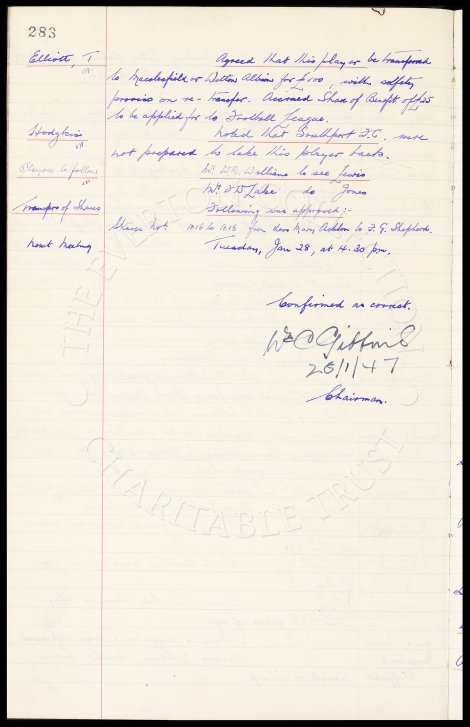 283
Elliott, T. Agreed that this player be transferred
to Macclesfield or Witton Albion for £100, with safety
proviso on re-transfer. Accrued Share of Benefit of £25
to be applied for to Football League.
Hodgkins Noted that Southport F.C. were
not prepared to take this player back.
Players to follow Mr. W.R. Williams to see Lewis
Mr. do Jones
Transfers of Shares Following was approved:-
Shares Nos 1016 to 1018 from Mary Ashton to F.G. Shepherd.
Next Meeting Tuesday, Jan 28, at 4.30 pm.
Confirmed as correct.
Wm C Gibbins
28/1/47
Chairman.
THE EVERTON COLLECTION
CHARITABLE TRUST